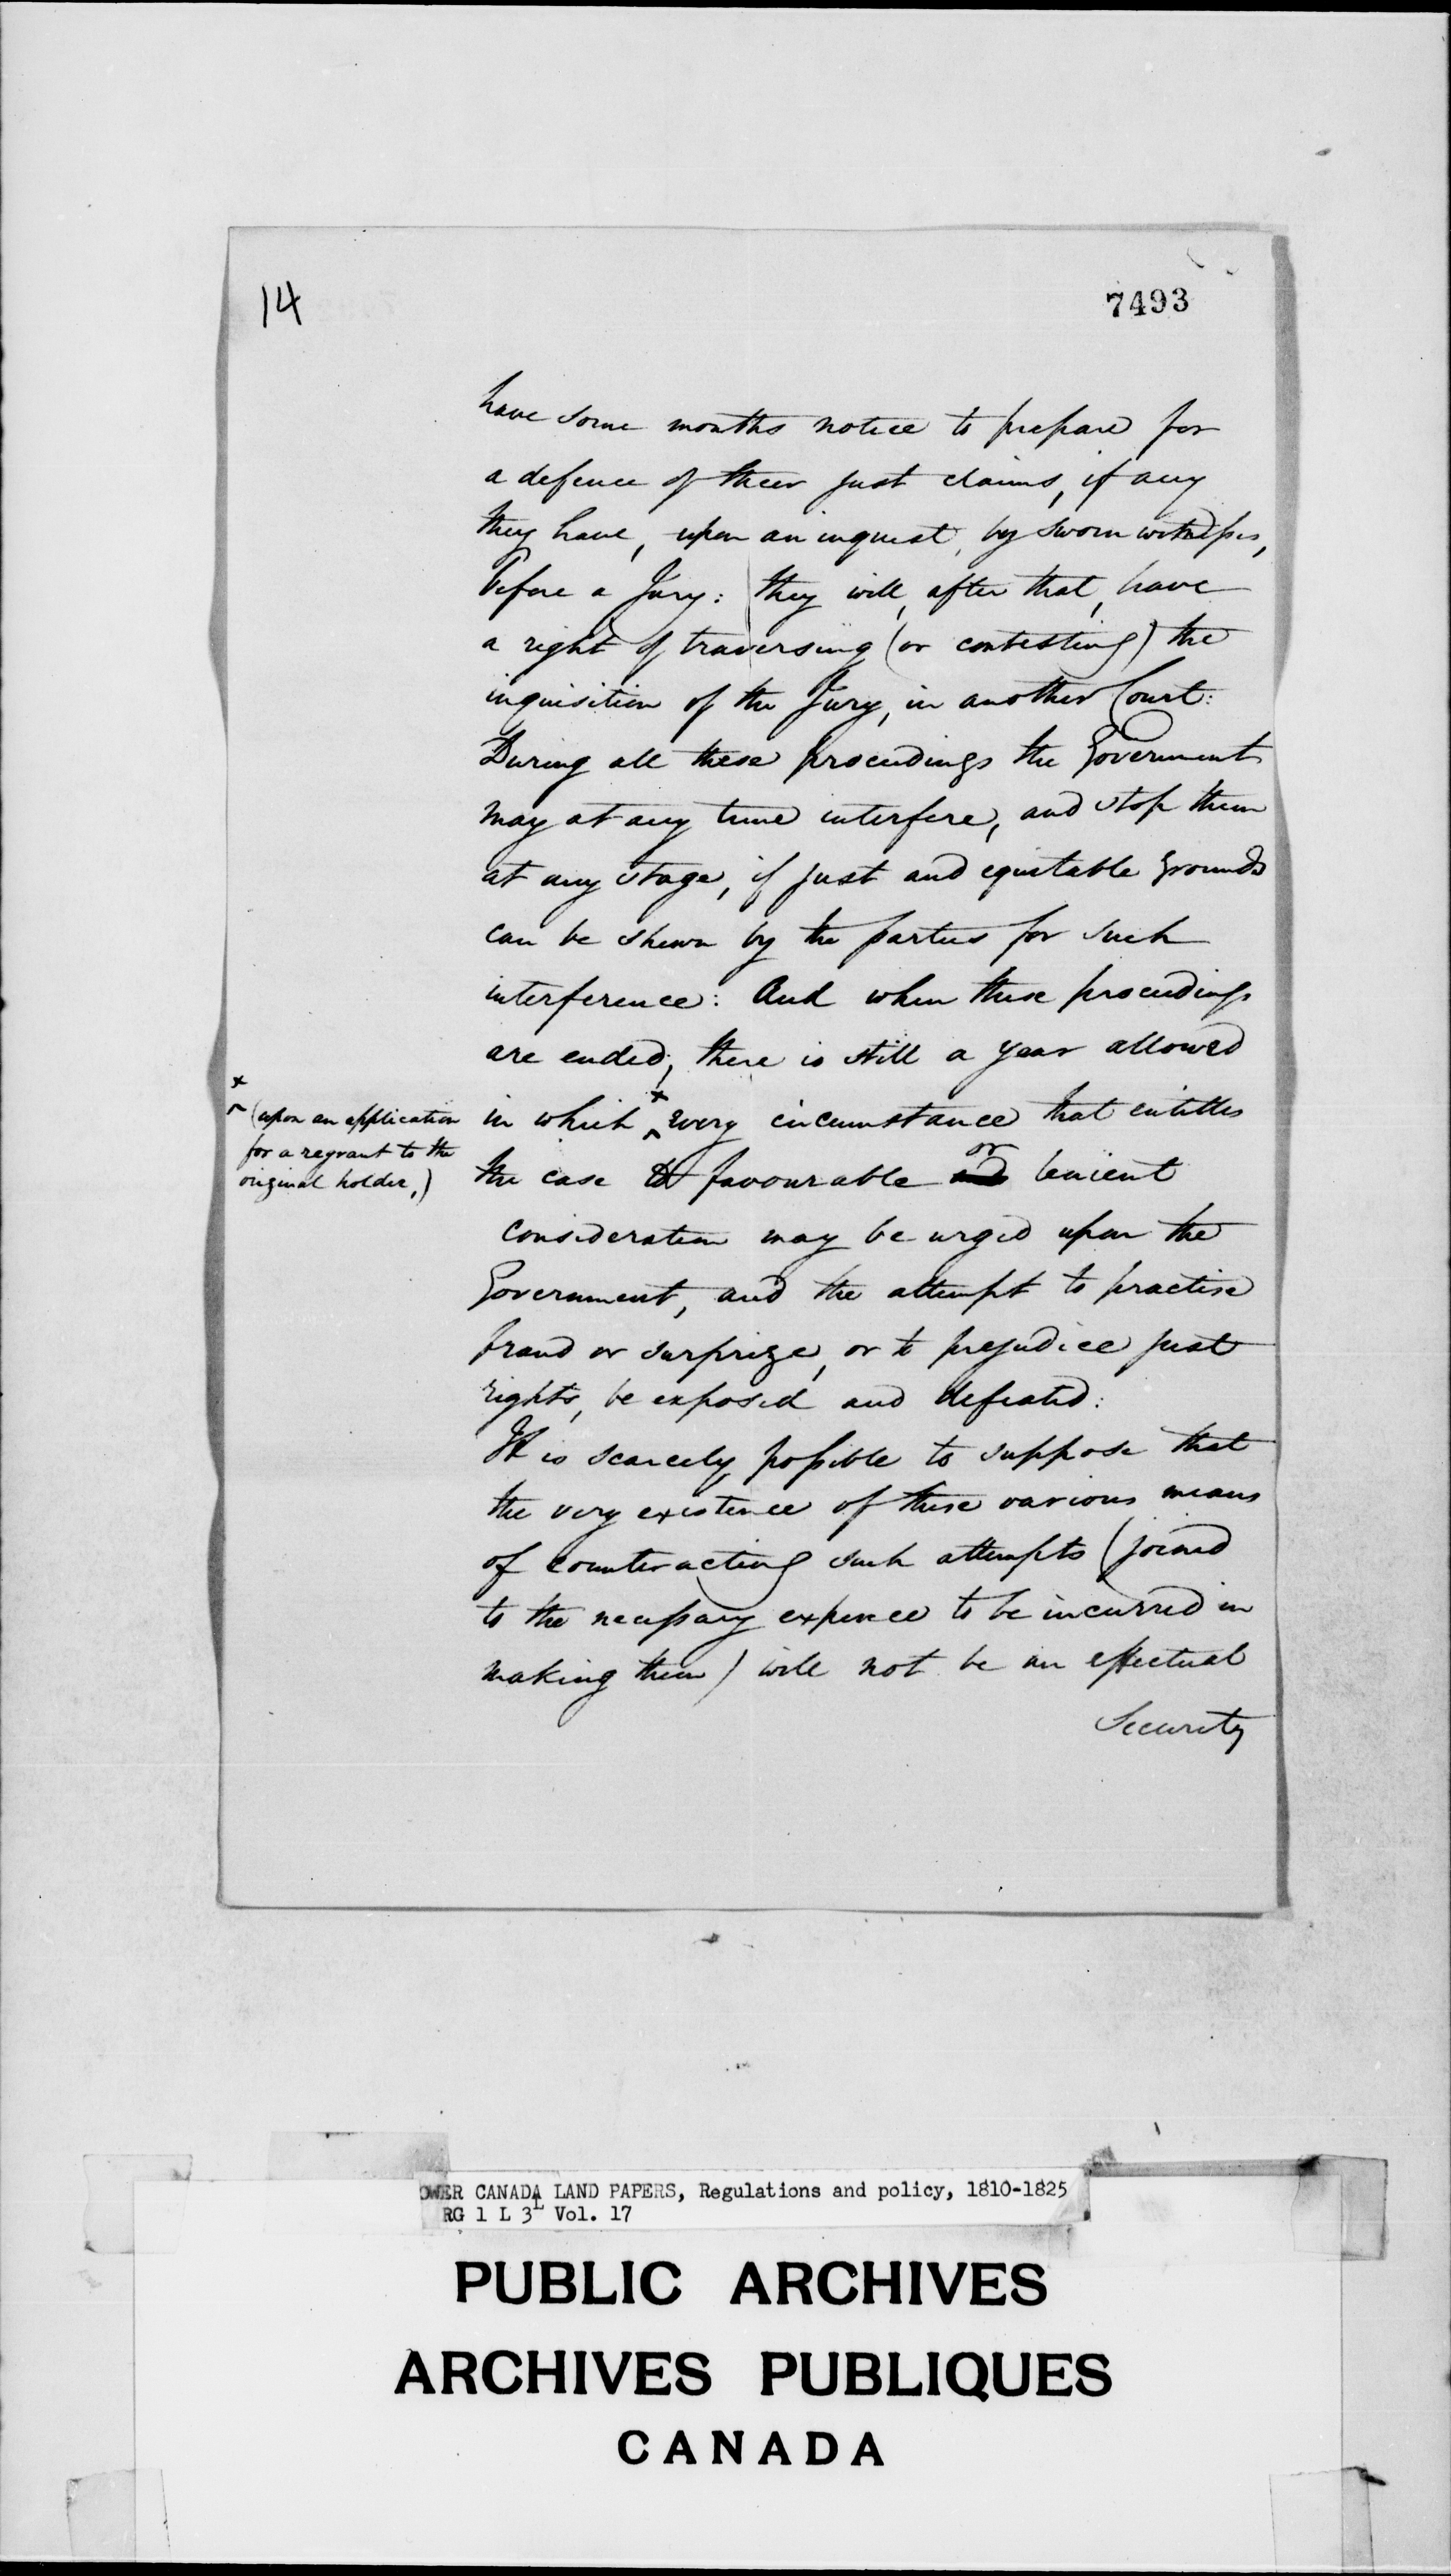 14
7493
have some months notice to prepare for
a defence of their just claims, if any
they have, upon an inquest, by sworn witnesses,
before a Jury: they will, after that, have
a right of traversing (or contesting) the
inquisition of the Jury, in another Court:
During all these proceedings the Government
may at any time interfere, and stop them
at any stage, if just and equitable grounds
can be shewn by the parties for such
interference: And when these proceedings
are ended, there is still a year allowed
in which ^x every circumstance that entitles
x
^ (upon an application
for a regrant to the
original holder,)
the case to favourable and or lenient
consideration may be urged upon the
Government, and the attempt to practise
fraud or surprize, or to prejudice just
rights, be exposed and defeated:
It is scarcely possible to suppose that
the very existence of these various means
of counteracting such attempts (joined
to the necessary expence to be incurred in
making them) will not be an effectual
Security
OWER CANADA LAND PAPERS, Regulations and policy, 1810-1825
RG 1 L 3L Vol. 17
PUBLIC ARCHIVES
ARCHIVES PUBLIQUES
CANADA